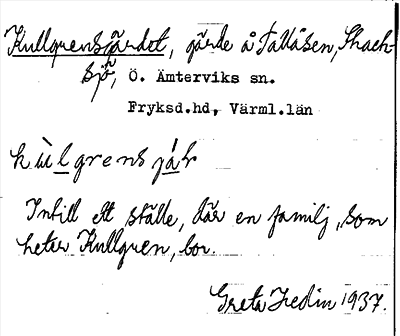 Kullgrensgärdet, gärde å Tallåsen, Skack-
sjö, Ö. Ämterviks sn.
Fryksd.hd, Värml.län
kùlgrens já̀r
Intill ett ställe, där en familj, som
heter Kullgren, bor.
Greta Hedin 1937.